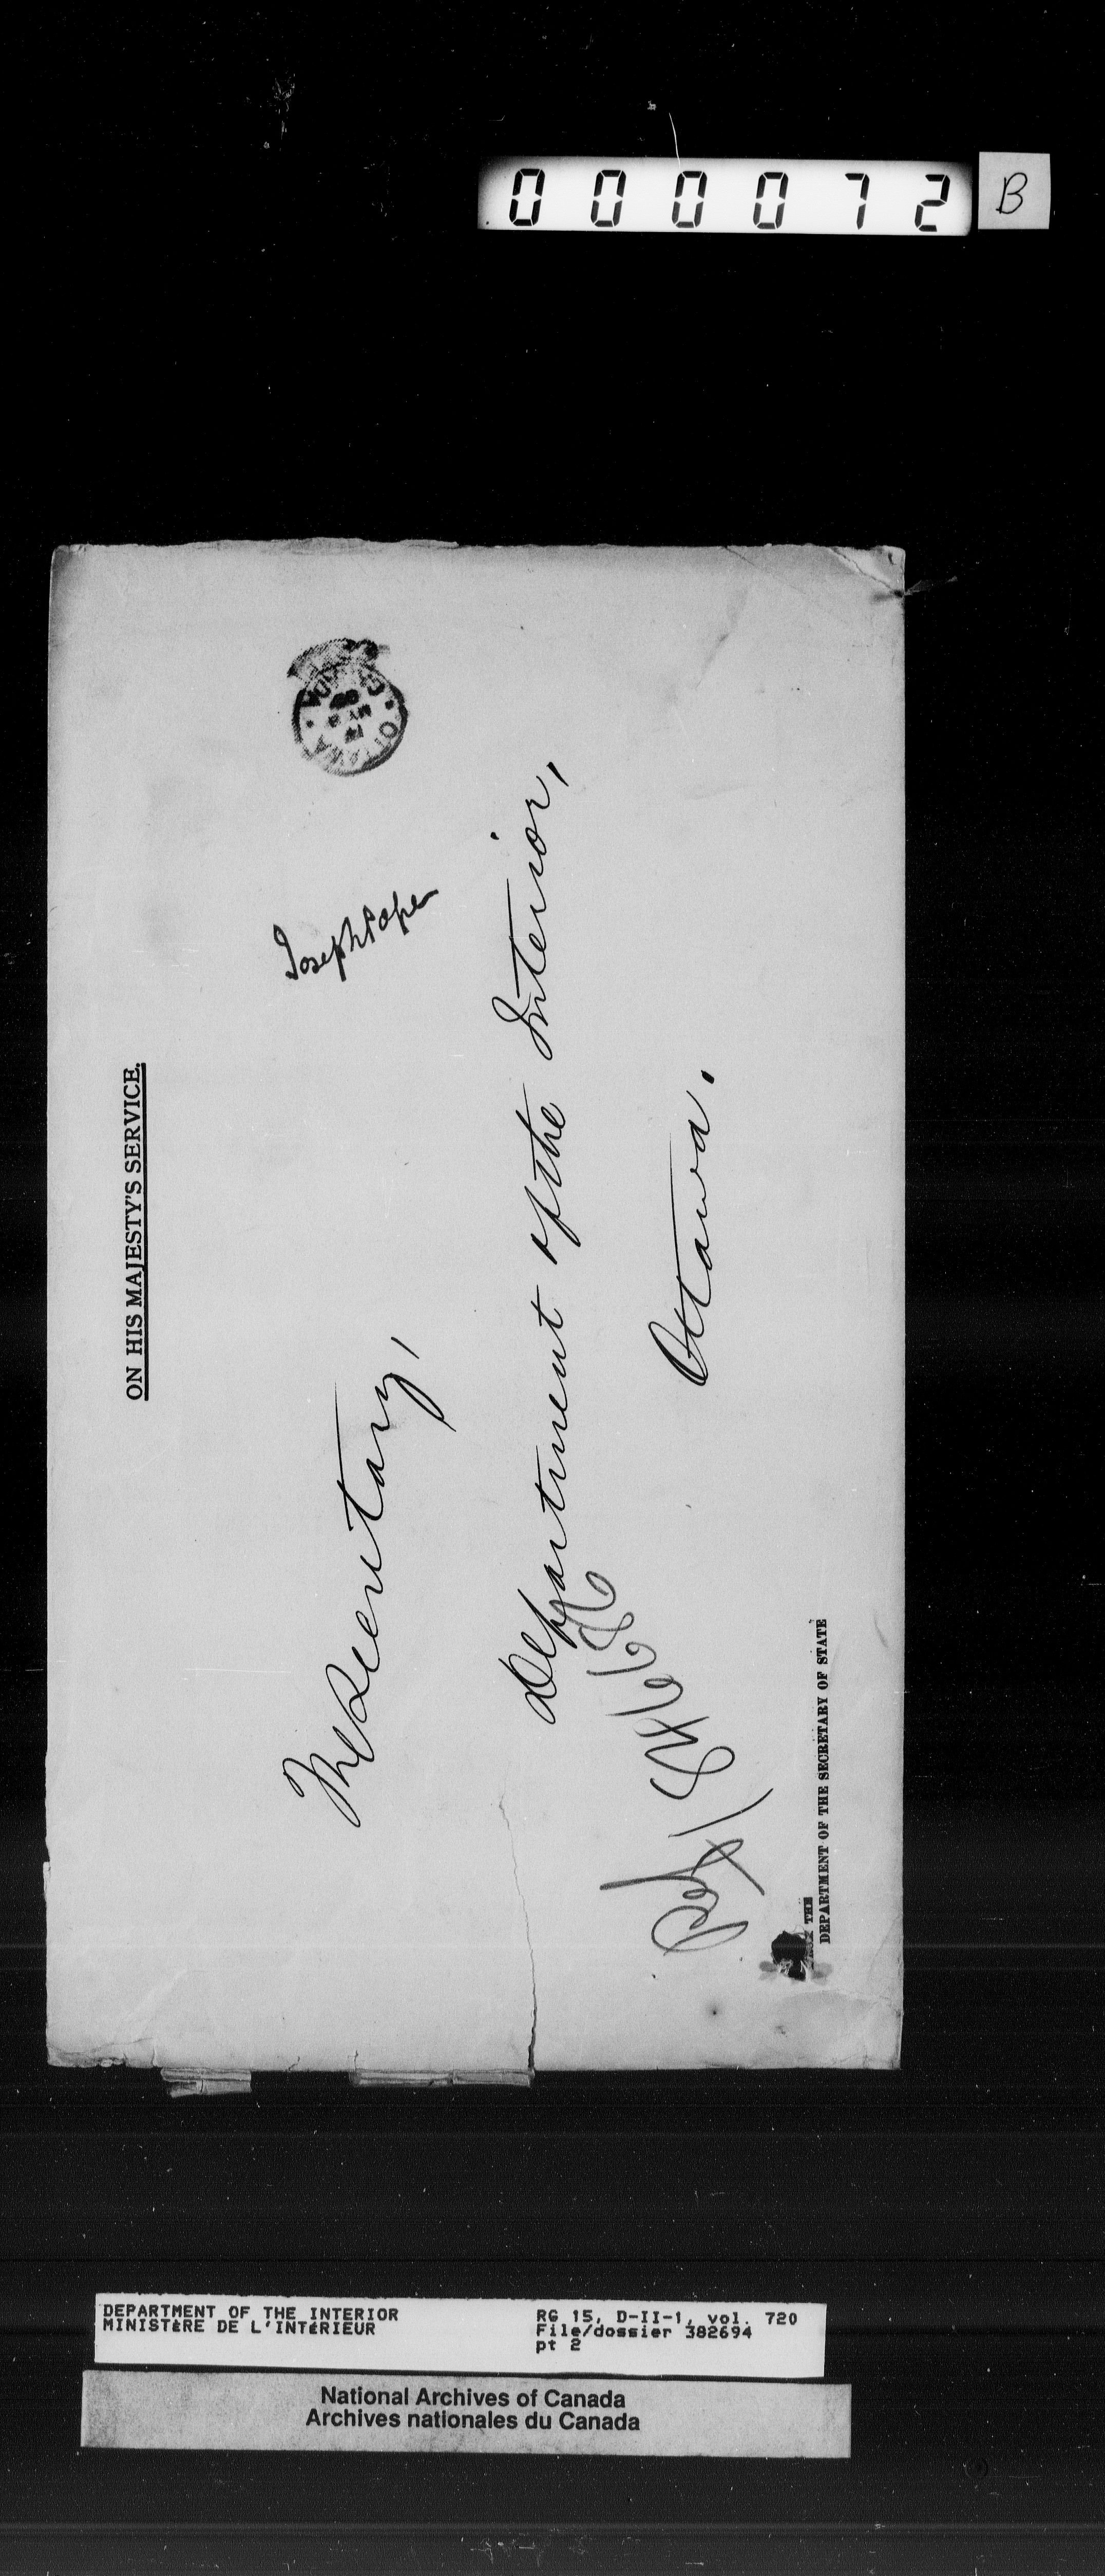 000072 B
ON HIS MAJESTY'S SERVICE.
Joseph Pope
The Secretary,
Department of the Interior,
Ottawa.
THE
DEPARTMENT OF THE SECRETARY OF STATE
DEPARTMENT OF THE INTERIOR
MINISTÈRE DE L'INTÉRIEUR
RG 15, D-II-1, vol. 720
File/dossier 382694
pt 2
National Archives of Canada
Archives nationales du Canada